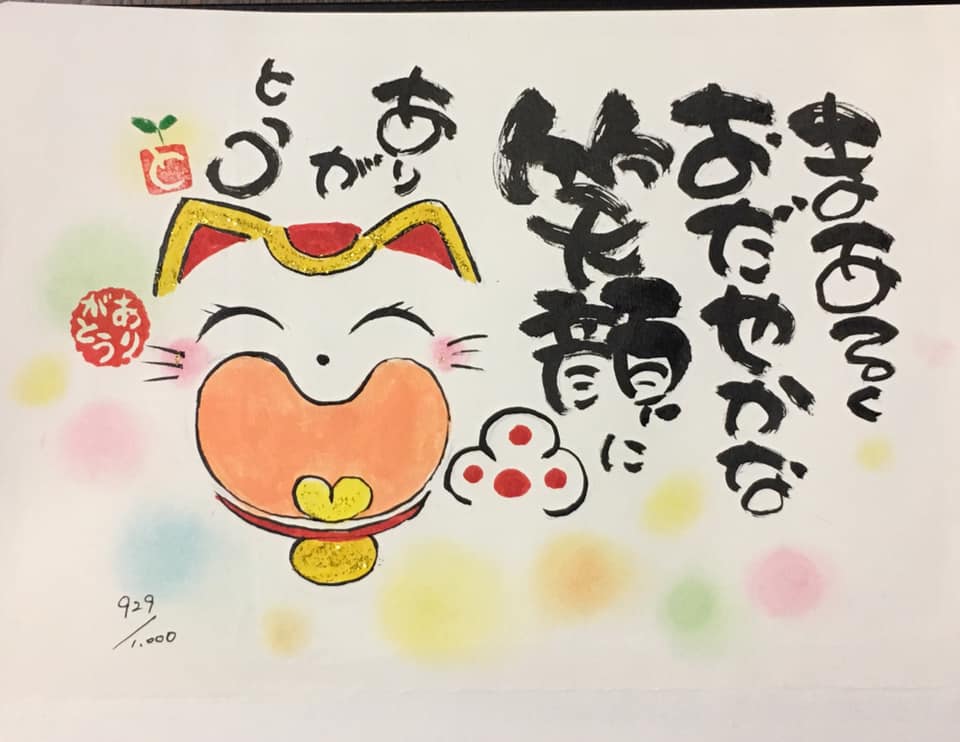 まあるく
おだやかな
笑顔に
あり
が
とう
と
あり
がとう
929
/1.000